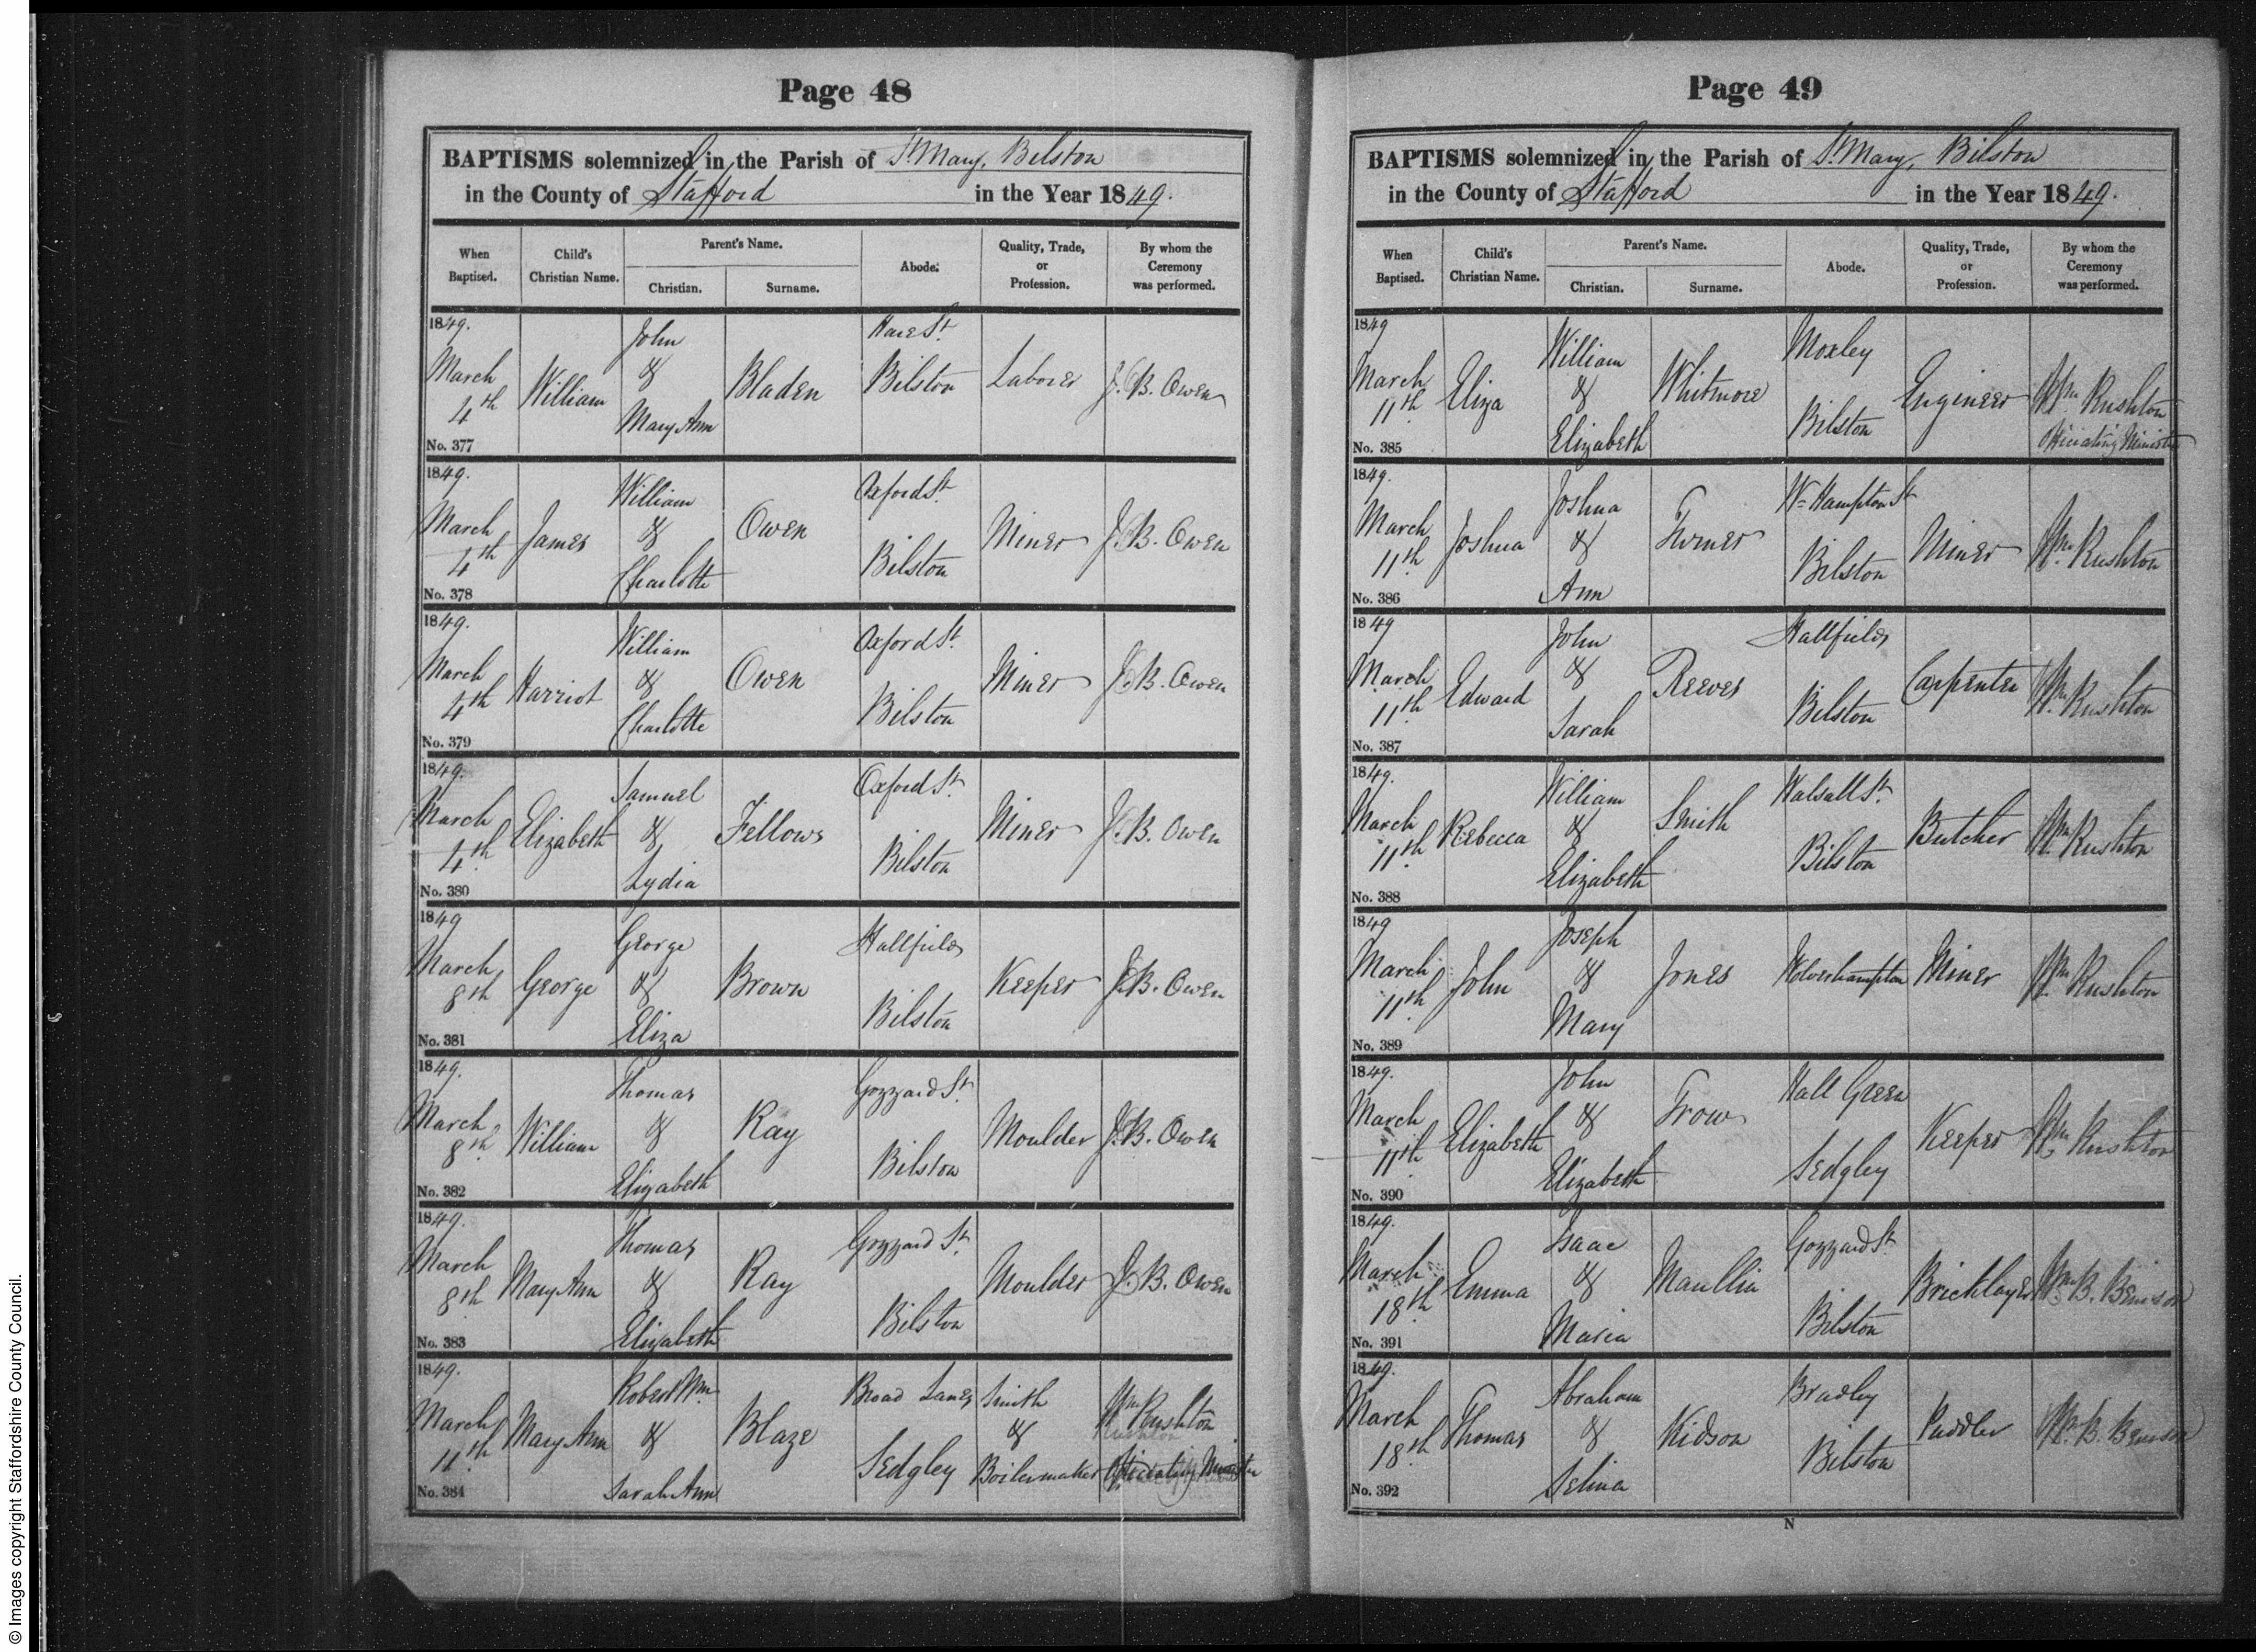 Page 48
BAPTISMS solemnized in the Parish of St Mary, Bilston
in the County of Stafford in the Year 1849.
When Baptised. Child's Christian Name. Parent's Name. Christian. Surname. Abode. Quality, Trade, or Profession. By whom the Ceremony was performed.
1849. March 4th William John & Mary Ann Bladen Hare St. Bilston Laborer J. B. Owen
No. 377
1849. March 4th James William & Charlotte Owen Oxford St. Bilston Miner J. B. Owen
No. 378
1849. March 4th Harriot William & Charlotte Owen Oxford St. Bilston Miner J. B. Owen
No. 379
1849. March 4th Elizabeth Samuel & Lydia Fellows Oxford St. Bilston Miner J. B. Owen
No. 380
1849 March 8th George George & Eliza Brown Hallfields Bilston Keeper J. B. Owen
No. 381
1849. March 8th William Thomas & Elizabeth Ray Gozzard St. Bilston Moulder J. B. Owen
No. 382
1849. March 8th Mary Ann Thomas & Elizabeth Ray Gozzard St. Bilston Moulder J. B. Owen
No. 383
1849. March 11th Mary Ann Robert Wm. & Sarah Ann Blaze Broad Lanes Sedgley Smith & Boilermaker Wm Rushton Officiating Minister
No. 384
Page 49
BAPTISMS solemnized in the Parish of St Mary, Bilston
in the County of Stafford in the Year 1849.
When Baptised. Child's Christian Name. Parent's Name. Christian. Surname. Abode. Quality, Trade, or Profession. By whom the Ceremony was performed.
1849 March 11th Eliza William & Elizabeth Whitmore Moxley Bilston Engineer Wm Rushton Officiating Minister
No. 385
1849. March 11th Joshua Joshua & Ann Turner Wr Hampton St Bilston Miner Wm Rushton
No. 386
1849 March 11th Edward John & Sarah Reeves Hallfields Bilston Carpenter Wm Rushton
No. 387
1849. March 11th Rebecca William & Elizabeth Smith Walsall St. Bilston Butcher Wm Rushton
No. 388
1849 March 11th John Joseph & Mary Jones Wolverhampton Miner Wm Rushton
No. 389
1849. March 11th Elizabeth John & Elizabeth Trow Hall Green Sedgley Keeper Wm Rushton
No. 390
1849. March 18th Emma Isaac & Maria Maullin Gozzard St. Bilston Bricklayer Wm B.
No. 391
1849. March 18th Thomas Abraham & Selina Kidson Bradley Bilston Puddler Wm B.
No. 392
N
© Images copyright Staffordshire County Council.